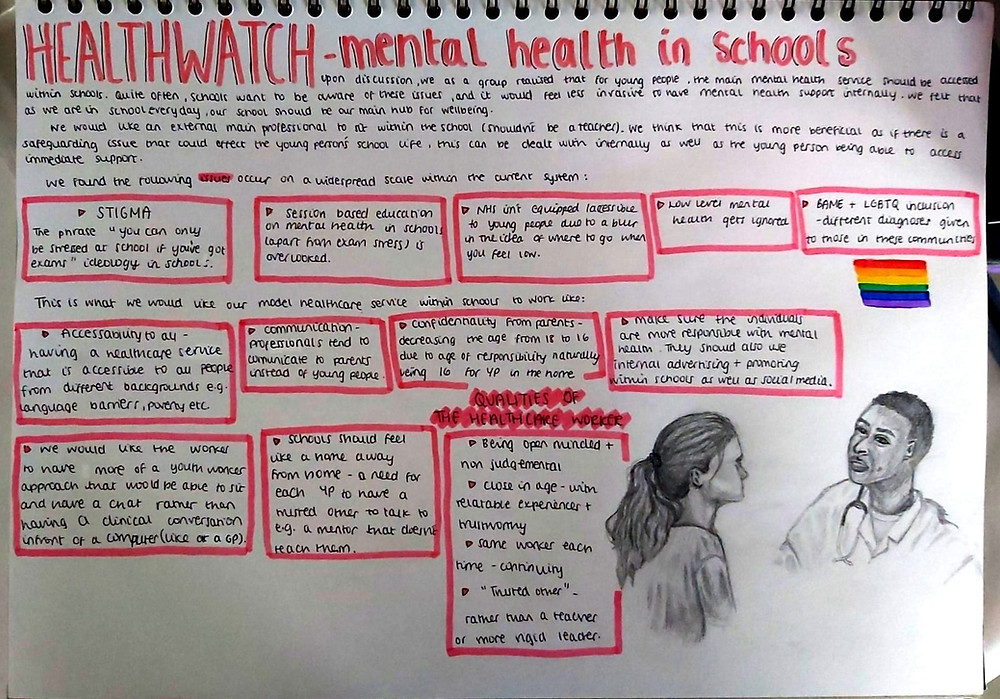 HEALTHWATCH - mental health in schools
upon discussion, we as a group realised that for young people, the main mental health service should be accessed
within schools. Quite often, schools want to be aware of these issues, and it would feel less invasive to have mental health support internally. we felt that
as we are in school everyday, our school should be our main hub for wellbeing.
we would like an external main professional to sit within the school (shouldn't be a teacher). we think that this is more beneficial as if there is a
safeguarding issue that could effect the young persons school life, this can be dealt with internally as well as the young person being able to access
immediate support.
we found the following issues occur on a widespread scale within the current system:
STIGMA
The phrase "you can only
be stressed at school if you've got
exams" ideology in schools.
session based education
on mental health in schools
(apart from exam stress) is
overlooked.
NHS isn't equipped / accessible
to young people due to a blur
in the idea of where to go when
you feel low.
Low level mental
health gets ignored
BAME + LGBTQ inclusion
- different diagnoses given
to those in these communities
This is what we would like our model healthcare service within schools to work like:
Accessability to all -
having a healthcare service
that is accessible to all people
from different backgrounds e.g.
language barriers, poverty etc
communication -
professionals tend to
comunicate to parents
instead of young people.
confidentiality from parents -
decreasing the age from 18 to 16
due to age of responsibility naturally
being 16 for YP in the home
make sure the individuals
are more responsible with mental
health. They should also use
internal advertising + promoting
within schools as well as social media.
we would like the worker
to have more of a youth worker
approach that would be able to sit
and have a chat rather than
having a clinical conversation
infront of a computer (like at a GP).
schools should feel
like a home away
from home - a need for
each YP to have a
trusted other to talk to
e.g. a mentor that doesnt
teach them.
QUALITIES OF
THE HEALTHCARE WORKER
Being open minded +
non judgemental
close in age - with
relatable experiences +
trustworthy
same worker each
time - continuity
"Trusted other" -
rather than a teacher
or more rigid leader.